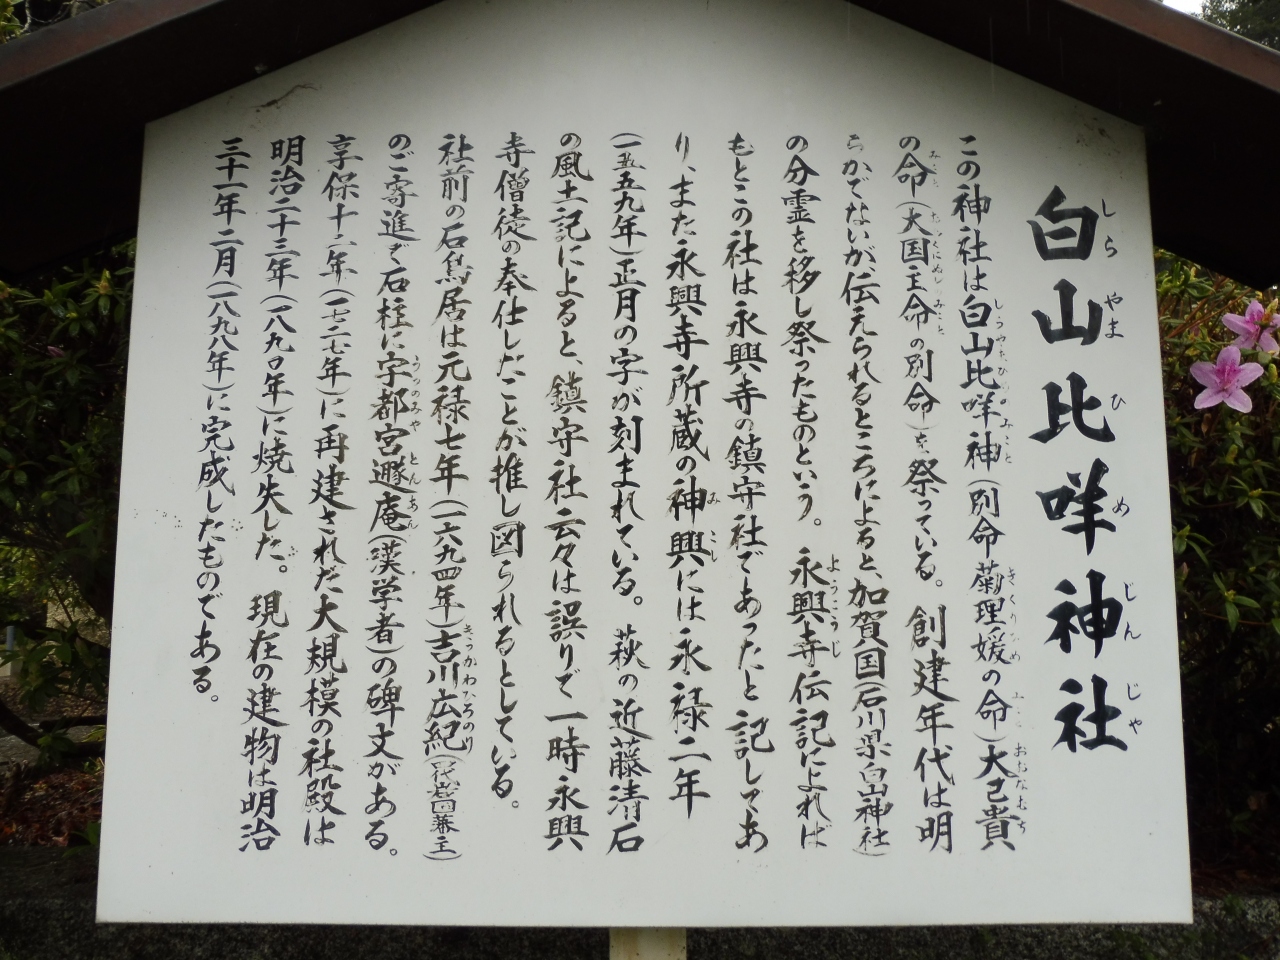 白山比咩神社
この神社は白山比咩神(別命菊理媛の命)大己貴
の命(大国主命の別命)を祭っている。創建年代は明
らかでないが伝えられるところによると、加賀国(石川県白山神社)
の分霊を移し祭ったものという。永興寺伝記によれば
もとこの社は永興寺の鎮守社であったと記してあ
り、また永興寺所蔵の神輿には永禄二年
(一五五九年)正月の字が刻まれている。萩の近藤清石
の風土記によると、鎮守社云々は誤りで一時永興
寺僧徒の奉仕したことが推し図られるとしている。
社前の石鳥居は元禄七年(一六九四年)吉川広紀(代岩国藩主)
のご寄進で石柱に宇都宮遯庵(漢学者)の碑文がある。
享保十二年(一七二七年)に再建された大規模の社殿は
明治二十三年(一八九〇年)に焼失した。現在の建物は明治
三十一年二月(一八九八年)に完成したものである。